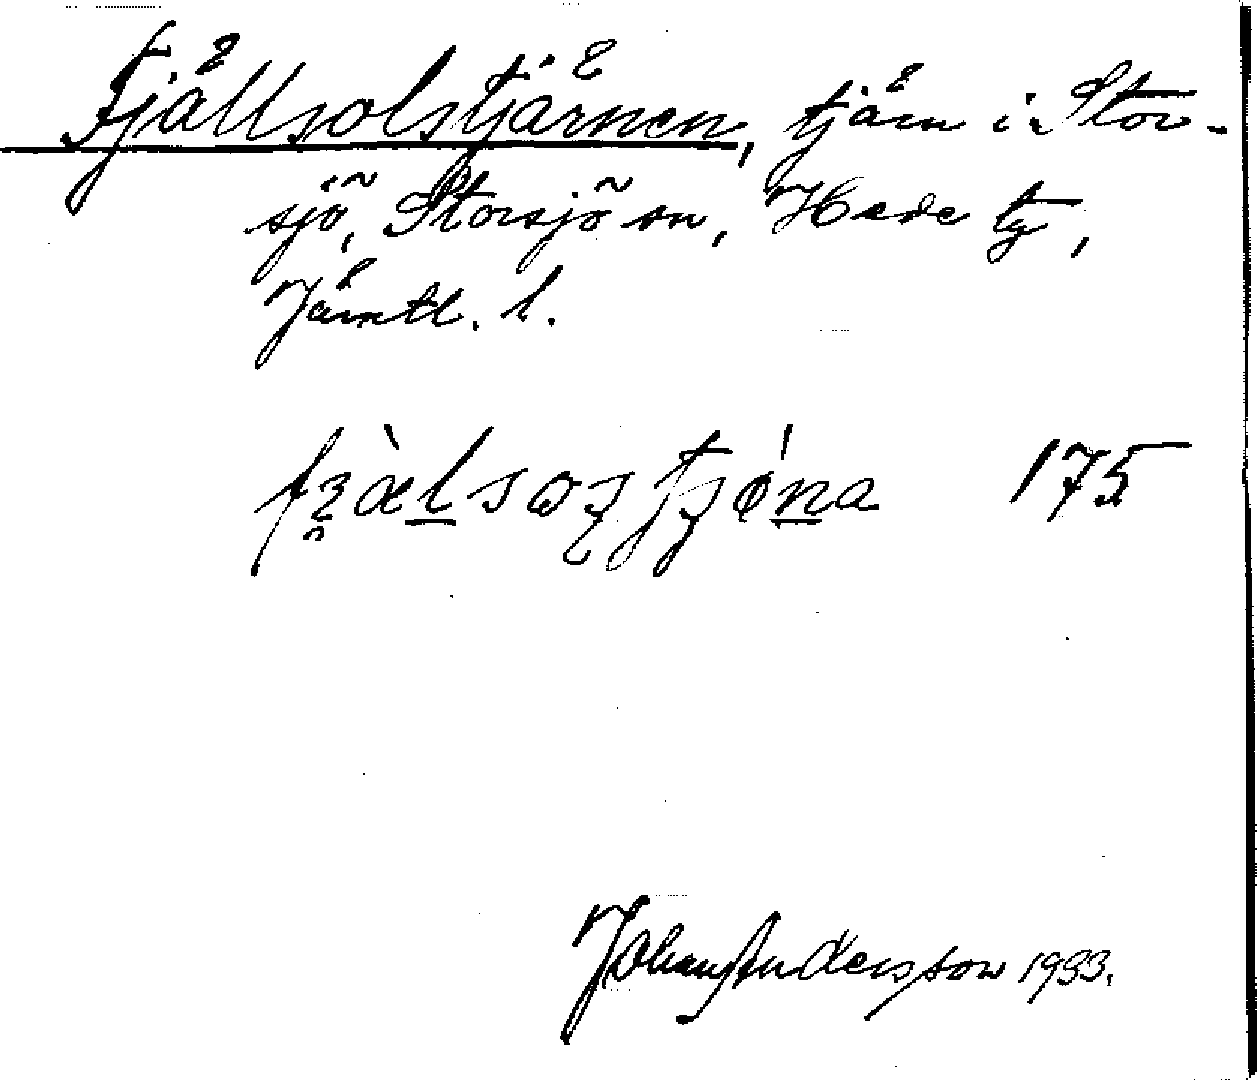 Fjällsolstjärnen, tjärn i Stor-
sjö, Storsjö sn, Hede tg,
Jämtl. l.
175
Johan Andersson 1933.